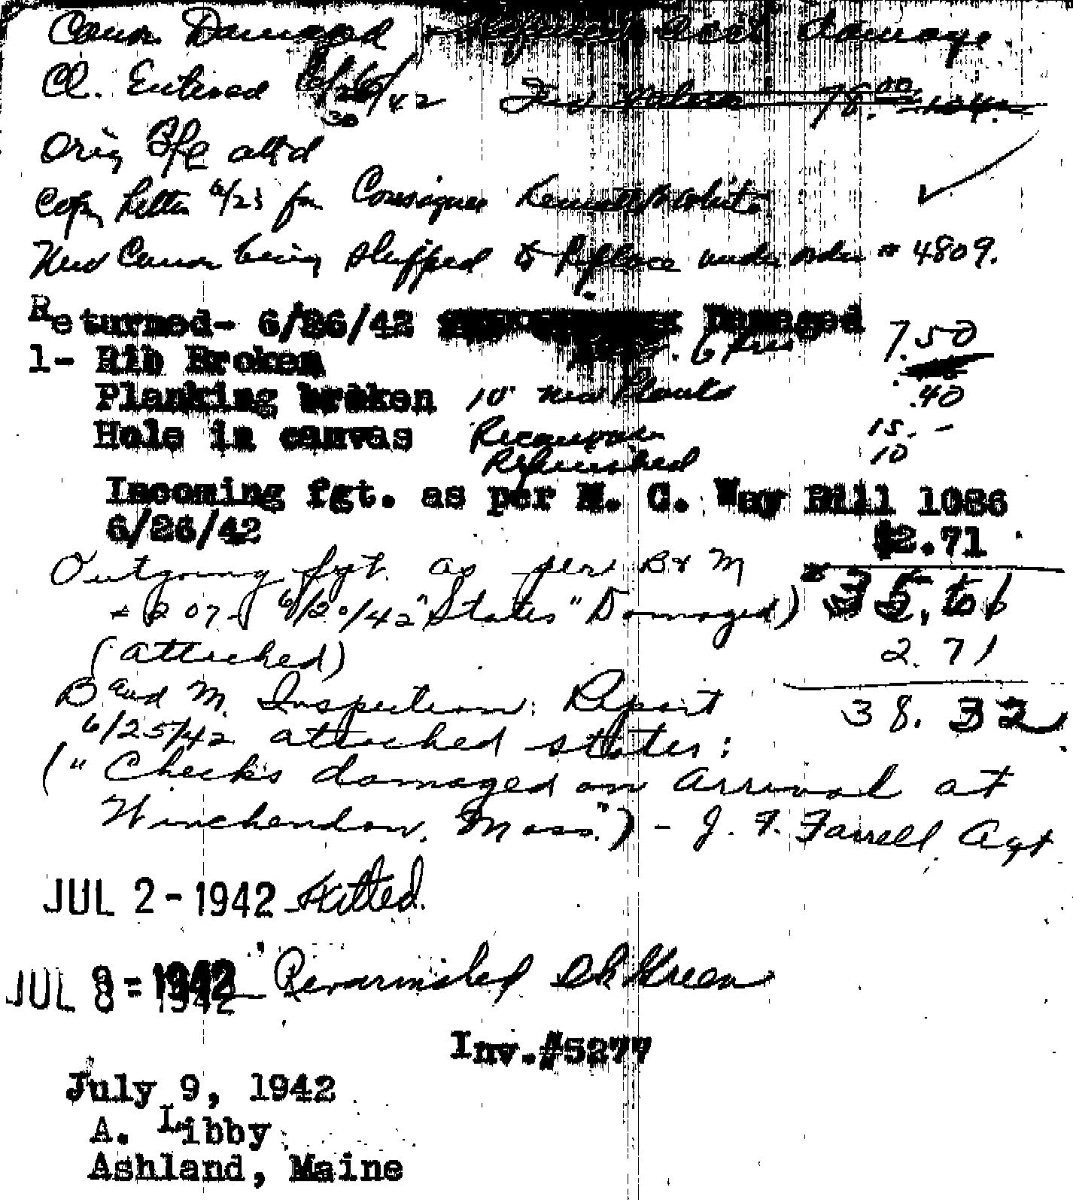 Canoe Damaged + acct damage
Cl. Entered 6/26/42 78.00
30
Orig B/L attd
Copy Letter 6/23 fm Consignee Kenneth White
New Canoe being shipped to Replace under order # 4809.
Returned- 6/26/42 Damaged
1- Rib Broken 7.50
Planking broken 10' new Planks .40
Hole in canvas Recanvas 15.-
Refinished 10
Incoming fgt. as per M. C. Way Bill 1086
6/26/42 $2.71
Outgoing fgt. as per B & M 35.61
6/20/42 "States" Damaged)
(attached) 2.71
B and M. Inspection Report 38.32
6/25/42 attached states:
("Checks damaged on arrival at
Winchendon, Mass.") - J. F. Farrell, Agt.
JUL 2-1942
JUL 9-1942 Revarnished Dk Green
JUL 8-1942
Inv.#5277
July 9, 1942
A. Libby
Ashland, Maine